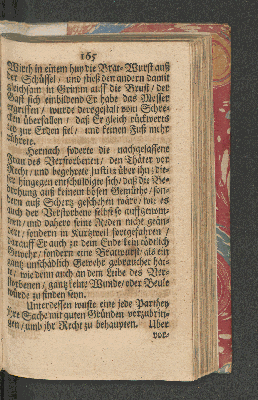 165
Wirth in einem huy die Brat-Wurst auß
der Schüssel / und stieß den andern damit
gleichsam in Grimm auff die Brust / der
Gast sich einbildend Er habe das Messer
ergriffen / wurde dergestalt vom Schre-
cken überfallen / daß Er gleich rückwerts
zur Erden fiel / und keinen Fuß mehr
rührete.
Hernach foderte die nachgelassene
Frau des Verstorbenen / den Thäter vor
Recht / und begehrete justitz über ihn; die-
ser hingegen entschuldigte sich / daß die Be-
drohung auß keinem bösen Gemüthe / son-
dern auß Schertz geschehen wäre / wie es
auch der Verstorbene selbst so auffgenom-
men / und dahero seine Reden nicht geän-
dert / sondern in Kurtzweil fortgefahren /
darauff Er auch zu dem Ende kein tödtlich
Gewehr / sondern eine Bratwurst / als ein
gantz unschädlich Gewehr gebrauchet hät-
te / wie denn auch an dem Leibe des Ver-
storbenen / gantz keine Wunde / oder Beule
würde zu finden seyn.
Unterdessen wuste eine jede Parthey
ihre Sache mit guten Gründen vorzubrin-
gen / umb ihr Recht zu behaupten. Über
vor-